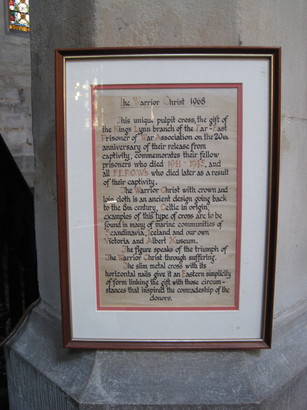 The Warrior Christ 1968
This unique pulpit cross, the gift of
the Kings Lynn branch of the Far-East
Prisoner of War Association on the 20th
anniversary of their release from
captivity, commemorates their fellow
prisoners who died 1941-1945, and
all F.E.P.O.W's who died later as a result
of their captivity.
The Warrior Christ with crown and
loin cloth is an ancient design going back
to the 6th century, Celtic in origin,
examples of this type of cross are to be
found in many of marine communities of
Scandinavia, Iceland and our own
Victoria and Albert Museum.
The figure speaks of the triumph of
The Warrior Christ through suffering.
The slim metal cross with its
horizontal nails give it an Eastern simplicity
of form linking the gift with those circum-
stances that inspired the comradeship of the
donors.